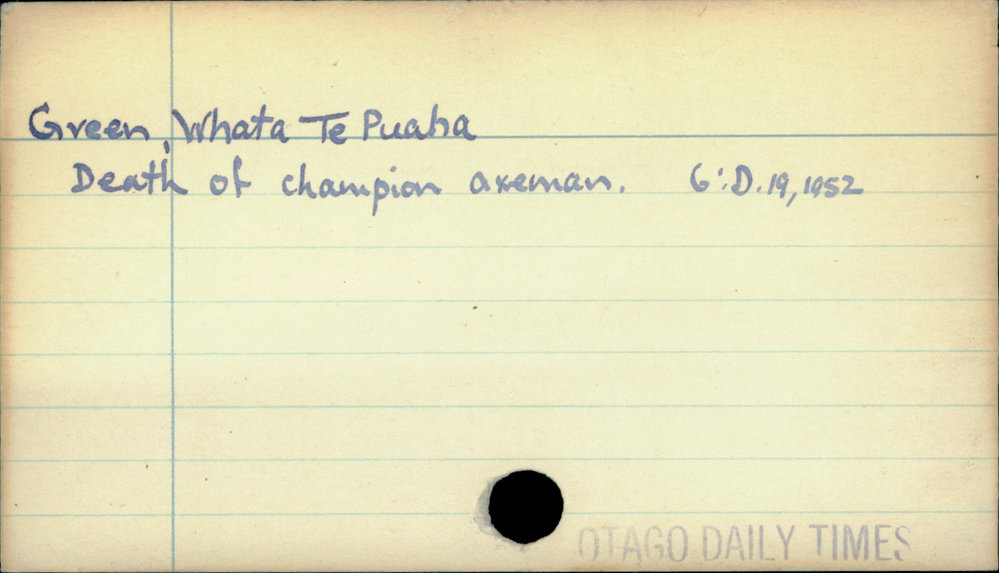 Green, Whata Te Puaha
Death of champion axeman. 6:D.19,1952
OTAGO DAILY TIMES